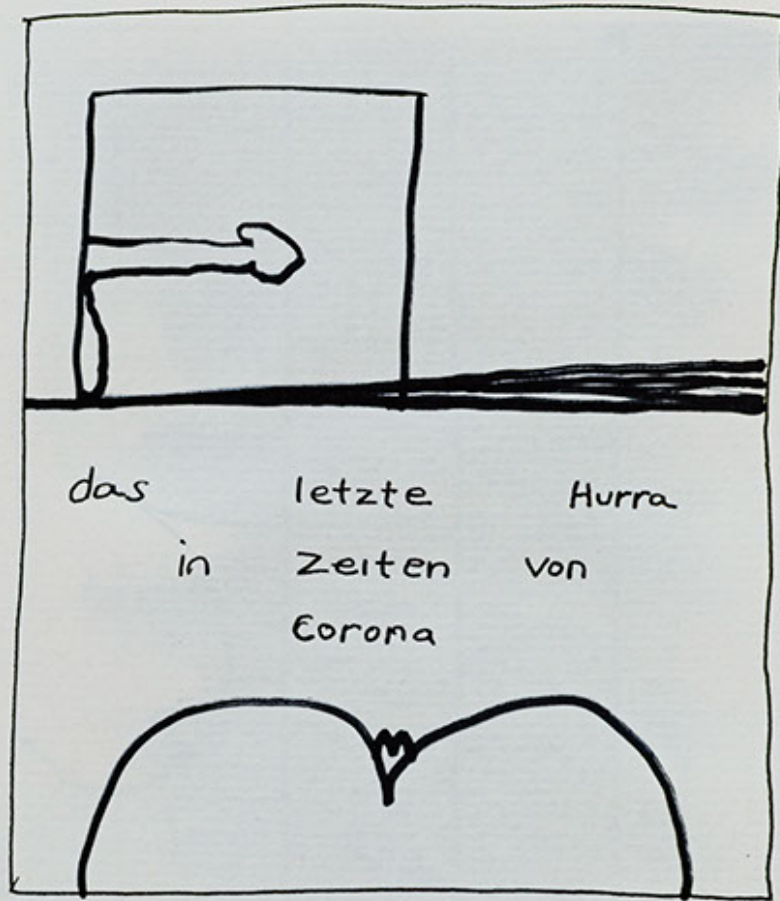 das letzte Hurra
in Zeiten von
Corona